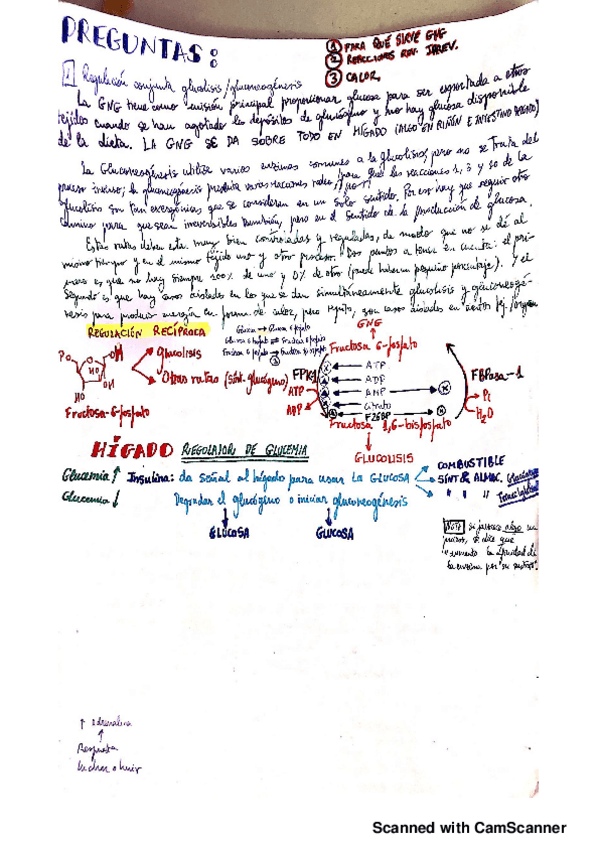 PREGUNTAS:
① PARA QUÉ SIRVE GNG
② REACCIONES REV. IRREV.
③ CALOR.
1 Regulación conjunta glucolisis/gluconeogénesis
La GNG tiene como misión principal proporcionar glucosa para ser exportada a otros
tejidos cuando se han agotado los depósitos de glucógeno y no hay glucosa disponible
de la dieta. LA GNG SE DA SOBRE TODO EN HÍGADO (ALGO EN RIÑÓN E INTESTINO DELGADO)
La Gluconeogénesis utiliza varias enzimas comunes a la Glucolisis, pero no se trata del
proceso inverso; la gluconeogénesis produce varias reacciones para que las reacciones 1, 3 y 10 de la
glucolisis son tan exergónicas que se consideran en un solo sentido. Por eso hay que seguir otro
camino para que sean irreversibles también, pero en el sentido de la producción de glucosa.
Estas rutas deben estar muy bien controladas y reguladas, de modo que no se dé al
mismo tiempo y en el mismo tejido uno y otro proceso. Dos puntos a tener en cuenta: el pri-
mero es que no hay siempre 100% de uno y 0% de otro (puede haber un pequeño porcentaje). Y el
segundo es que hay casos aislados en lo que se dan simultáneamente glucolisis y gluconeogé-
nesis para producir energía en forma de calor, pero repito, son casos aislados en
REGULACIÓN RECÍPROCA
Glucosa → Glucosa 6 fosfato
Glucosa 6 fosfato ⇌ Fructosa 6 fosfato
Fructosa 6 fosfato →
GNG
Fructosa 6-fosfato
Glucolisis
Otras rutas (sínt. glucógeno)
Fructosa-6-fosfato
FPK1
ATP
ADP
ATP
ADP
AMP
Citrato
F26BP
FBPasa-1
Pi
H2O
Fructosa 1,6-bisfosfato
GLUCOLISIS
HÍGADO REGULADOR DE GLUCEMIA
Glucemia ↑ Insulina: da señal al hígado para usar LA GLUCOSA
COMBUSTIBLE
SÍNT & ALMAC.
Glucemia ↓ Degradar el glucógeno o iniciar gluconeogénesis
GLUCOSA
GLUCOSA
NOTA si favorece algo un
proceso, se dice que
"aumenta la afinidad de
la enzima por su sustrato"
↑ Adrenalina
↑
Respuesta
luchar o huir
Scanned with CamScanner